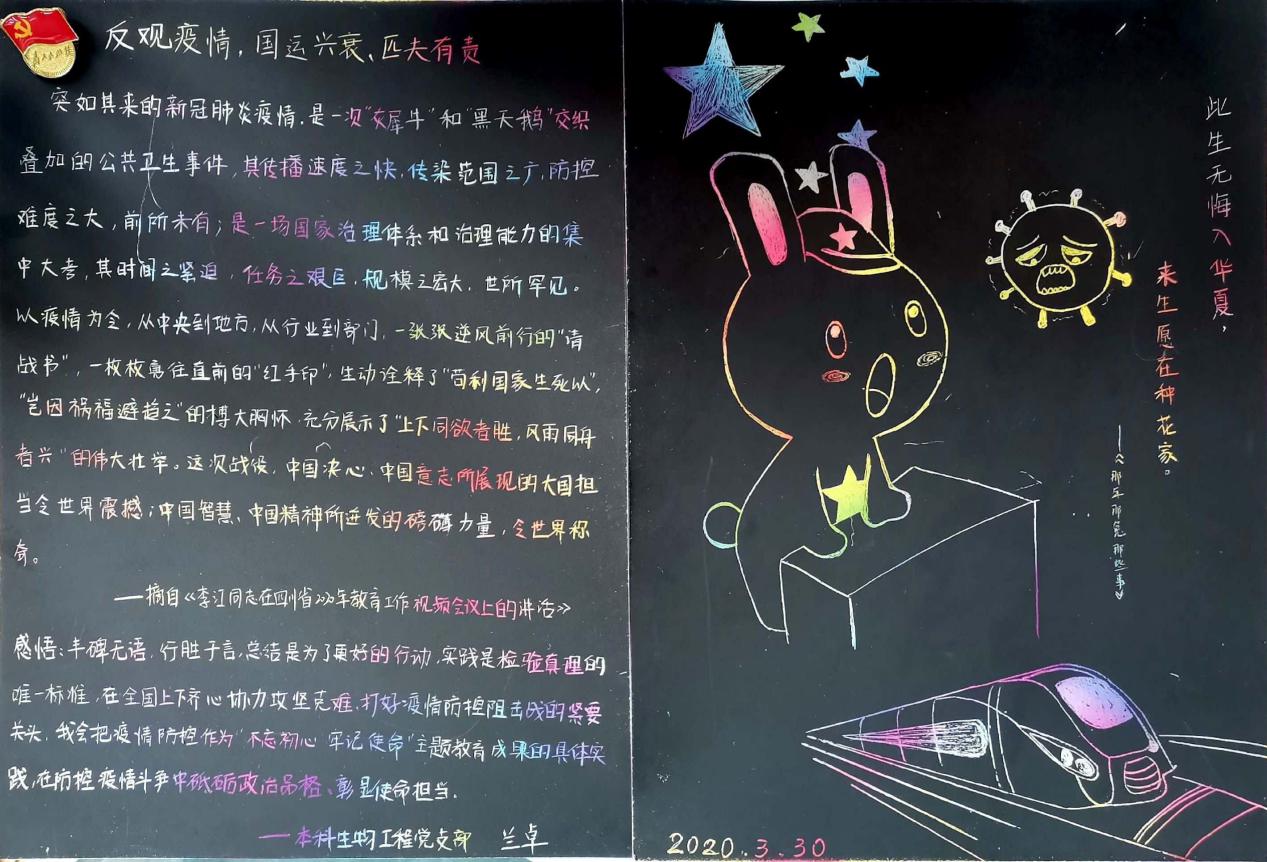 反观疫情，国运兴衰、匹夫有责
突如其来的新冠肺炎疫情，是一次"灰犀牛"和"黑天鹅"交织
叠加的公共卫生事件，其传播速度之快，传染范围之广，防控
难度之大，前所未有；是一场国家治理体系和治理能力的集
中大考，其时间之紧迫，任务之艰巨，规模之宏大，世所罕见。
以疫情为令，从中央到地方，从行业到部门，一张张逆风前行的"请
战书"，一枚枚勇往直前的"红手印"，生动诠释了"苟利国家生死以"，
"岂因祸福避趋之"的博大胸怀，充分展示了"上下同欲者胜，风雨同舟
者兴"的伟大壮举。这次战役，中国决心、中国意志所展现的大国担
当令世界震撼；中国智慧、中国精神所迸发的磅礴力量，令世界称
奇。
——摘自《李江同志在四川省2020年教育工作视频会议上的讲话》
感悟：丰碑无语，行胜于言，总结是为了更好的行动，实践是检验真理的
唯一标准，在全国上下齐心协力攻坚克难，打好疫情防控阻击战的紧要
关头，我会把疫情防控作为"不忘初心 牢记使命"主题教育成果的具体实
践，在防控疫情斗争中砥砺政治品格、彰显使命担当.
——本科生物工程党支部 兰卓
此生无悔入华夏，
来生愿在种花家。
——《那年那兔那些事》
2020.3.30